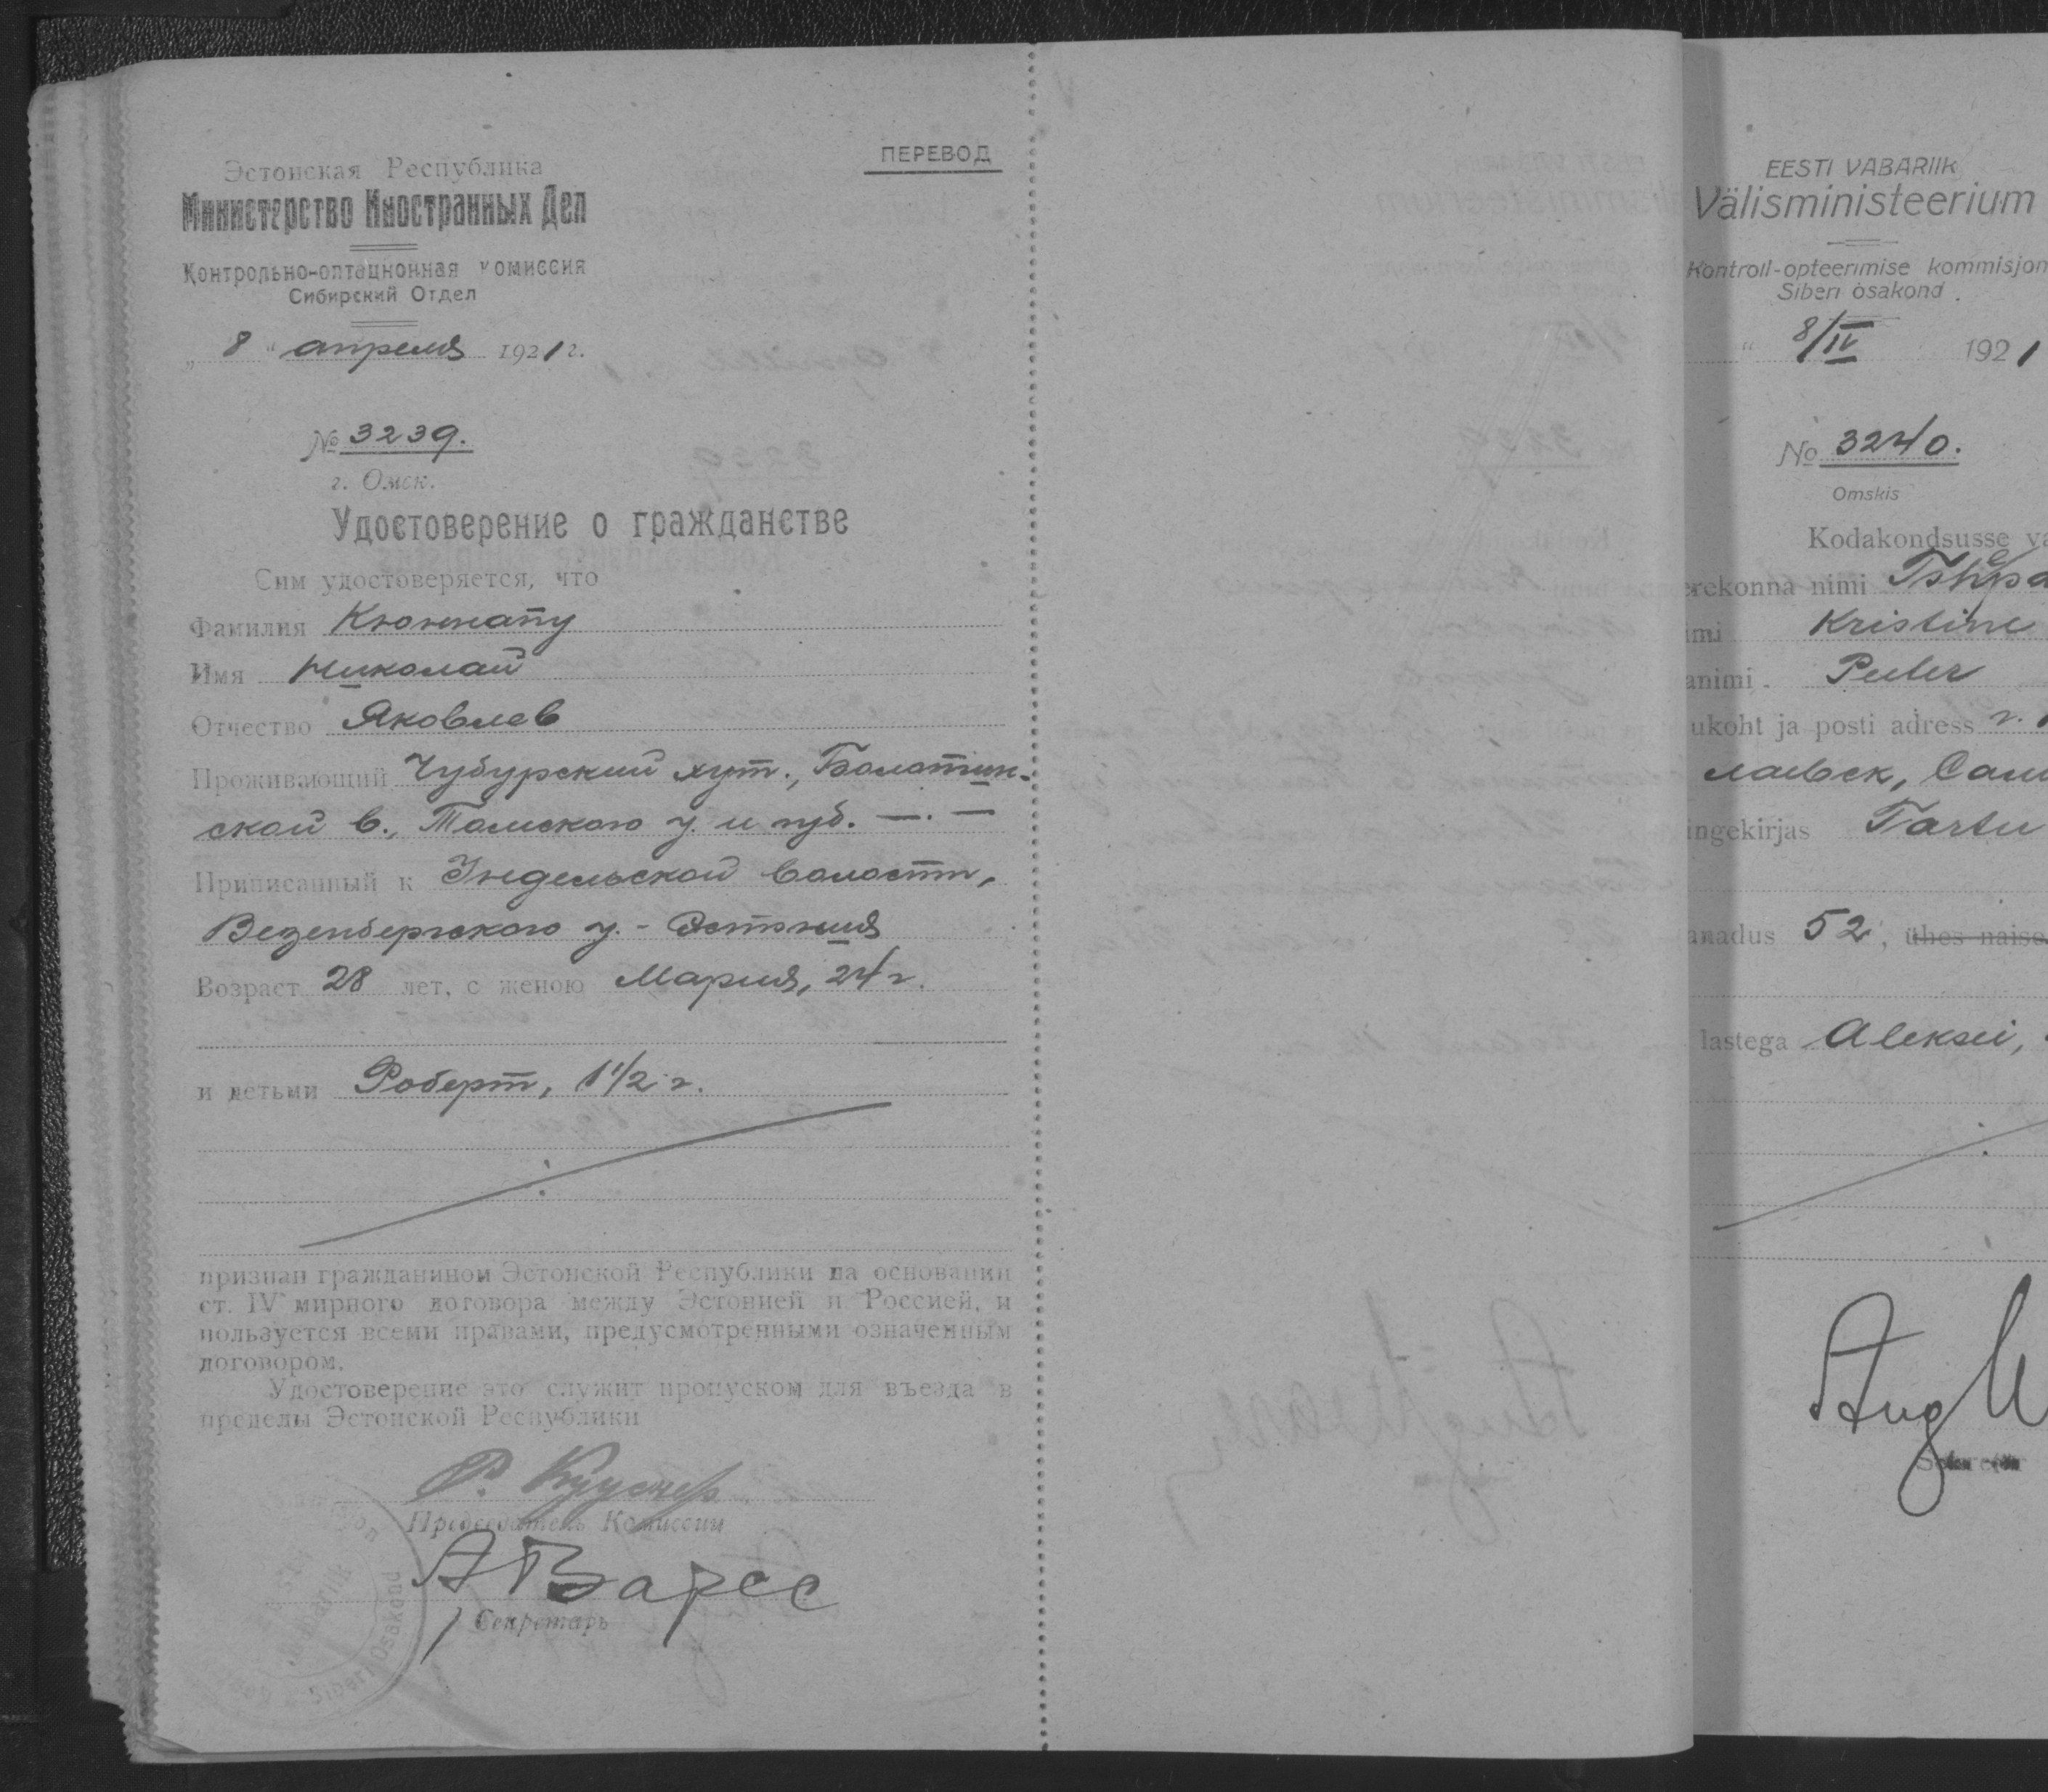 ПЕРЕВОД
Эстонская Республика
Министерство Иностранных Дел
Контрольно-оптационная комиссия
Сибирский Отдел
„ 8 “ апреля 1921 г.
№ 3239.
г. Омск.
Удостоверение о гражданстве
Сим удостоверяется, что
Фамилия Кюннапу
Имя Николай
Отчество Яковлев
Проживающий Чубурский хут., Болотин-
ской в., Томского у. и губ. —.—
Приписанный кУндельской волости,
Везенбергского у. - Эстония
Возраст 28 лет, с женою Мария, 24 г.
и детьми Роберт, 1 1/2 г.
признан гражданином Эстонской Республики на основании
ст. IV мирного договора между Эстонией и Россией, и
пользуется всеми правами, предусмотренными означенным
договором.
Удостоверение это служит пропуском для въезда в
пределы Эстонской Республики
Председатель Комиссии
АВарес
Секретарь
Siberi Osakond
EESTI VABARIIK
Välisministeerium
Kontroll-opteerimise kommisjon
Siberi osakond
“ 8/IV 1921
No 3240.
Omskis
Kodakondsusse
erekonna nimi
imi Kristine
animi. Peeter
ukoht ja posti adress г.
лаевск,
ingekirjas Tartu
anadus 52, ühes naise
lastega Aleksei,
Aug